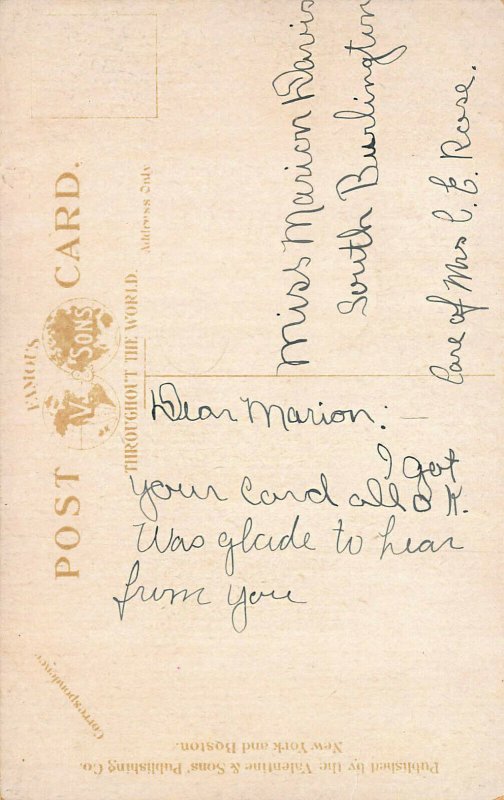 FAMOUS
POST CARD.
V. & SONS
THROUGHOUT THE WORLD.
Address Only
Miss Marion Davis
South Burlington
Care of Mrs C. E. Rose.
Dear Marion: —
I got
your Card all O K.
Was glade to hear
from you
Correspondence
Published by the Valentine & Sons' Publishing Co.
New York and Boston.